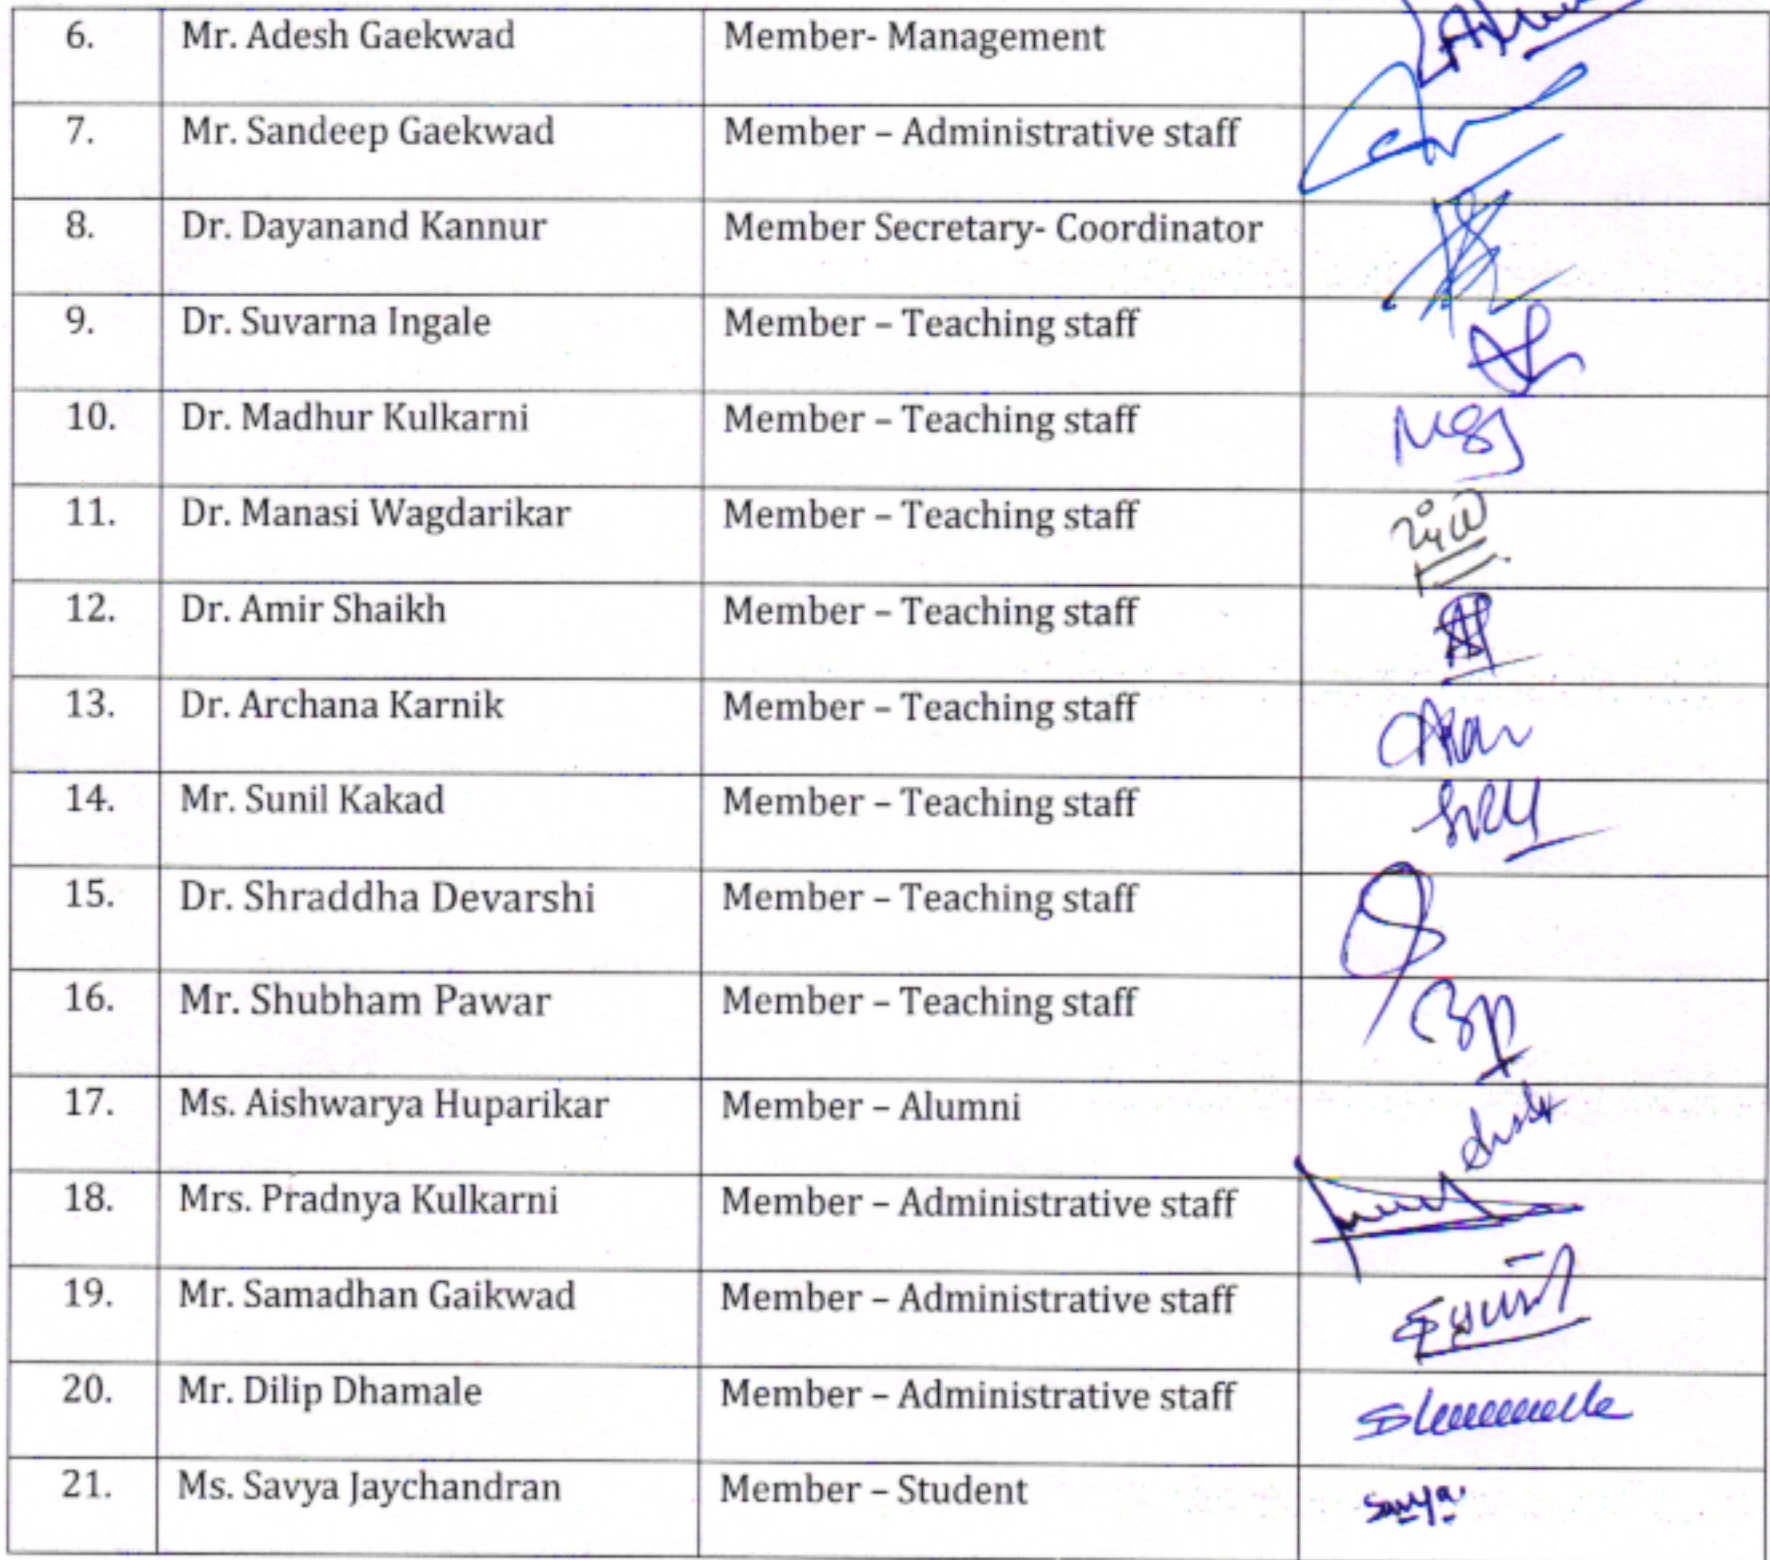 6. Mr. Adesh Gaekwad Member- Management
7. Mr. Sandeep Gaekwad Member – Administrative staff
8. Dr. Dayanand Kannur Member Secretary- Coordinator
9. Dr. Suvarna Ingale Member – Teaching staff
10. Dr. Madhur Kulkarni Member – Teaching staff
11. Dr. Manasi Wagdarikar Member – Teaching staff
12. Dr. Amir Shaikh Member – Teaching staff
13. Dr. Archana Karnik Member – Teaching staff
14. Mr. Sunil Kakad Member – Teaching staff
15. Dr. Shraddha Devarshi Member – Teaching staff
16. Mr. Shubham Pawar Member – Teaching staff
17. Ms. Aishwarya Huparikar Member – Alumni
18. Mrs. Pradnya Kulkarni Member – Administrative staff
19. Mr. Samadhan Gaikwad Member – Administrative staff
20. Mr. Dilip Dhamale Member – Administrative staff
21. Ms. Savya Jaychandran Member – Student Savya.